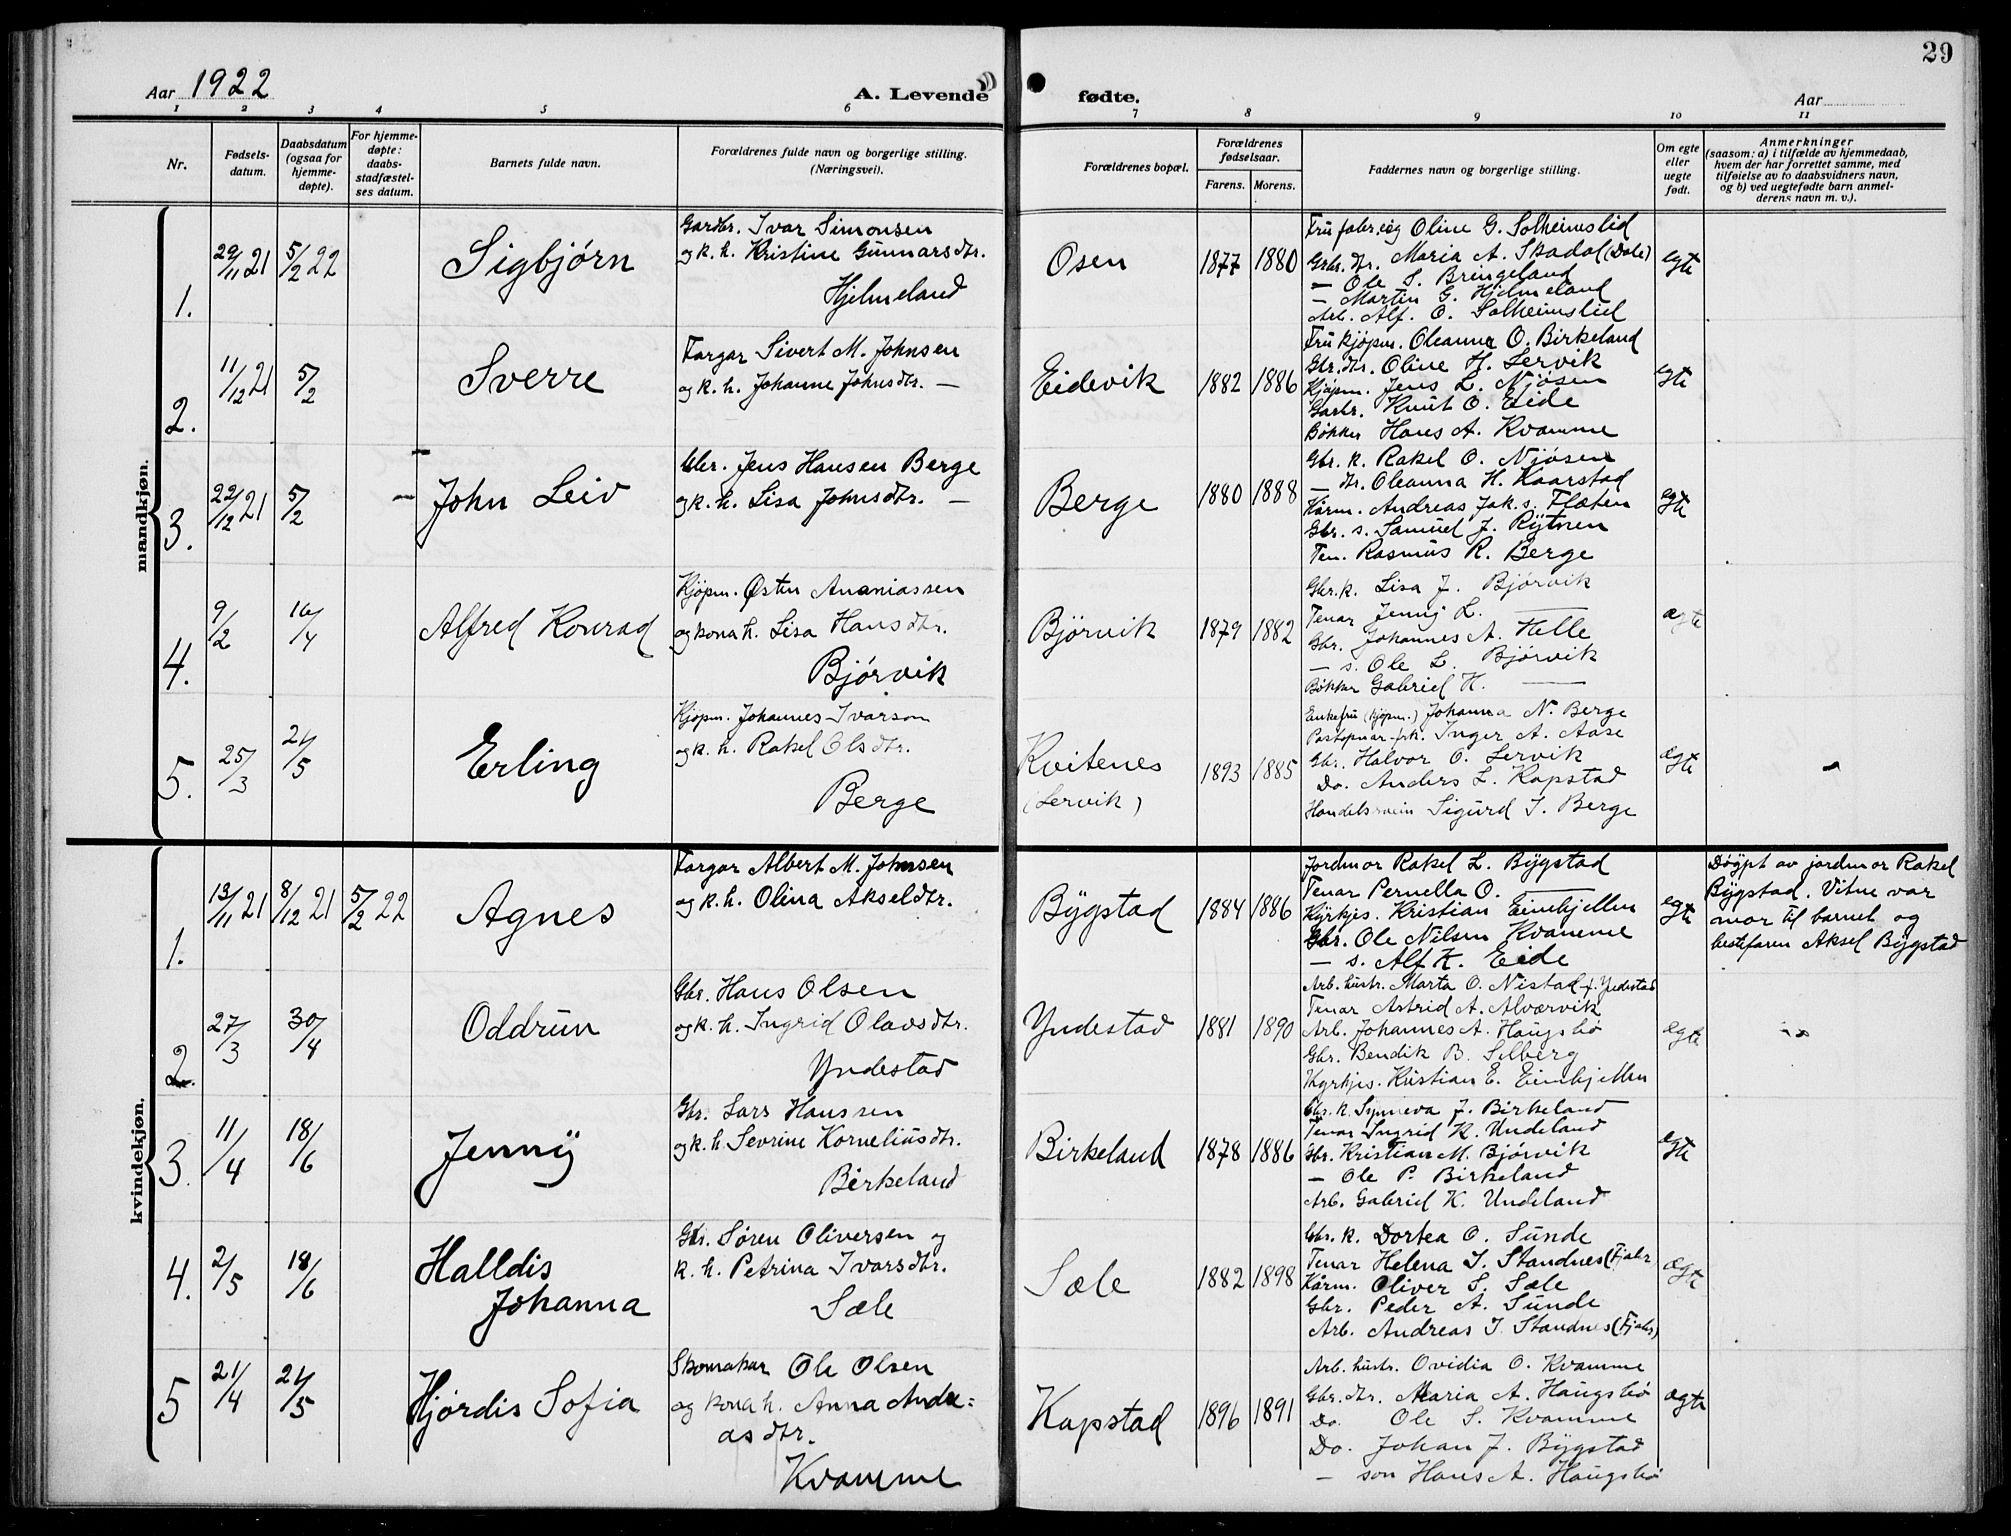 29
Aar 1922
A. Levende fødte.
Aar
1 2 3 4 5 6 7 8 9 10 11
Nr.
Fødsels-
datum.
Daabsdatum
(ogsaa for
hjemme-
døpte).
For hjemme-
døpte:
daabs-
stadfæstel-
ses datum.
Barnets fulde navn.
Forældrenes fulde navn og borgerlige stilling.
(Næringsvei).
Forældrenes bopæl.
Forældrenes
fødselsaar.
Farens. Morens.
Faddernes navn og borgerlige stilling.
Om egte
eller
uegte
født.
Anmerkninger
(saasom: a) i tilfælde av hjemmedaab,
hvem der har forrettet samme, med
tilføielse av to daabsvidners navn,
og b) ved uegtefødte barn anmel-
derens navn m. v.).
mandkjøn.
1.
29/11 21 5/2 22
Sigbjørn
Gardbr. Ivar Simonsen
og k. h. Kristine Gunnarsdtr.
Hjelmeland
Osen
1877 1880
Oline G. Solheimslid
Gbr. dtr. Maria A. Skadal (Dale)
— Ole S. Bringeland
— Martin G. Hjelmeland
Arb. Alf. O. Solheimslid
egte
2.
11/12 21 5/2
Sverre
Fargar Sivert M. Johnsen
og k. h. Johanne Johnsdtr. —
Eidevik
1882 1886
Fru kjøpm. Oleanna O. Birkeland
Gbr. dtr. Oline H. Lervik
Kjøpm. Jens L. Njøsen
Garbr. Knut O. Eide
Bøkker Hans A. Kvamme
egte
3.
22/12 21 5/2 —
John Leiv
Gbr. Jens Hansen Berge
og k. h. Lisa Johnsdtr. —
Berge
1880 1888
Gbr. k. Rakel O. Njøsen
— dtr. Oleanna H. Kaarstad
Kårm. Andreas Jak. s. Flæten
Gbr. s. Samuel J. Rytnen
Ten. Rasmus R. Berge
egte
4.
9/2 16/4
Alfred Konrad
Kjøpm. Østen Ananiassen
og kona h. Lisa Hansdtr.
Bjørvik
Bjørvik
1879 1882
Gbr. k. Lisa J. Bjørvik
Tenar Jenny L. —
Gbr. Johannes A. Helle
— s. Ole L. Bjørvik
Bøkker Gabriel H. —
ægte
5.
25/3 21/5
Erling
Kjøpm. Johannes Ivarson
og k. h. Rakel Olsdtr.
Berge
Kvitenes
(Lervik)
1893 1885
Enkefru (kjøpm.) Johanna N. Berge
Postopnar frk. Inger A. Aase
Gbr. Halvor O. Lervik
Do. Anders L. Kapstad
Handelssvein Sigurd I. Berge
ægte
—
kvindekjøn.
1.
13/11 21 8/12 21 5/2 22
Agnes
Fargar Albert M. Johnsen
og k. h. Olina Akseldtr.
Bygstad
1884 1886
Jordmor Rakel L. Bygstad
Tenar Pernella O. —
Kyrkjes. Kristian Eimhjellen
Gbr. Ole Nilsen Kvamme
— s. Alf K. Eide
egte
Døypt av jordmor Rakel
Bygstad. Vitne var
mor til barnet og
bestefaren Aksel Bygstad
2.
27/3 30/4
Oddrun
Gbr. Hans Olsen
og k. h. Ingrid Olavsdtr.
Yndestad
Yndestad
1881 1890
Arb. hustr. Marta O. Nistad f. Yndestad
Tenar Astrid A. Alværvik
Arb. Johannes A. Haugsbø
Gbr. Bendik B. Selberg
Kyrkjes. Kristian E. Eimhjellen
egte
3.
11/4 18/6
Jenny
Gbr. Lars Hanssen
og k. h. Sevrine Korneliusdtr.
Birkeland
Birkeland
1878 1886
Gbr. k. Synneva J. Birkeland
Tenar Ingrid K. Undeland
Gbr. Kristian M. Bjørvik
— Ole P. Birkeland
Arb. Gabriel K. Undeland
egte
4.
2/5 18/6
Halldis
Johanna
Gbr. Søren Oliversen og
k. h. Petrina Ivarsdtr.
Sæle
Sæle
1882 1898
Gbr. k. Dortea O. Sunde
Tenar Helena I. Standnes (Fjaler)
Kårm. Oliver S. Sæle
Gbr. Peder A. Sunde
Arb. Andreas I. Standnes (Fjaler)
ægte
5
21/4 21/5
Hjørdis Sofia
Skomakar Ole Olsen
og kona h. Anna Andre=
asdtr.
Kvamme
Kapstad
1896 1891
Arb. hustr. Ovidia O. Kvamme
Gbr. dtr. Maria A. Haugsbø
Do. Ole S. Kvamme
Do. Johan J. Bygstad
— son Hans A. Haugsbø
ægte